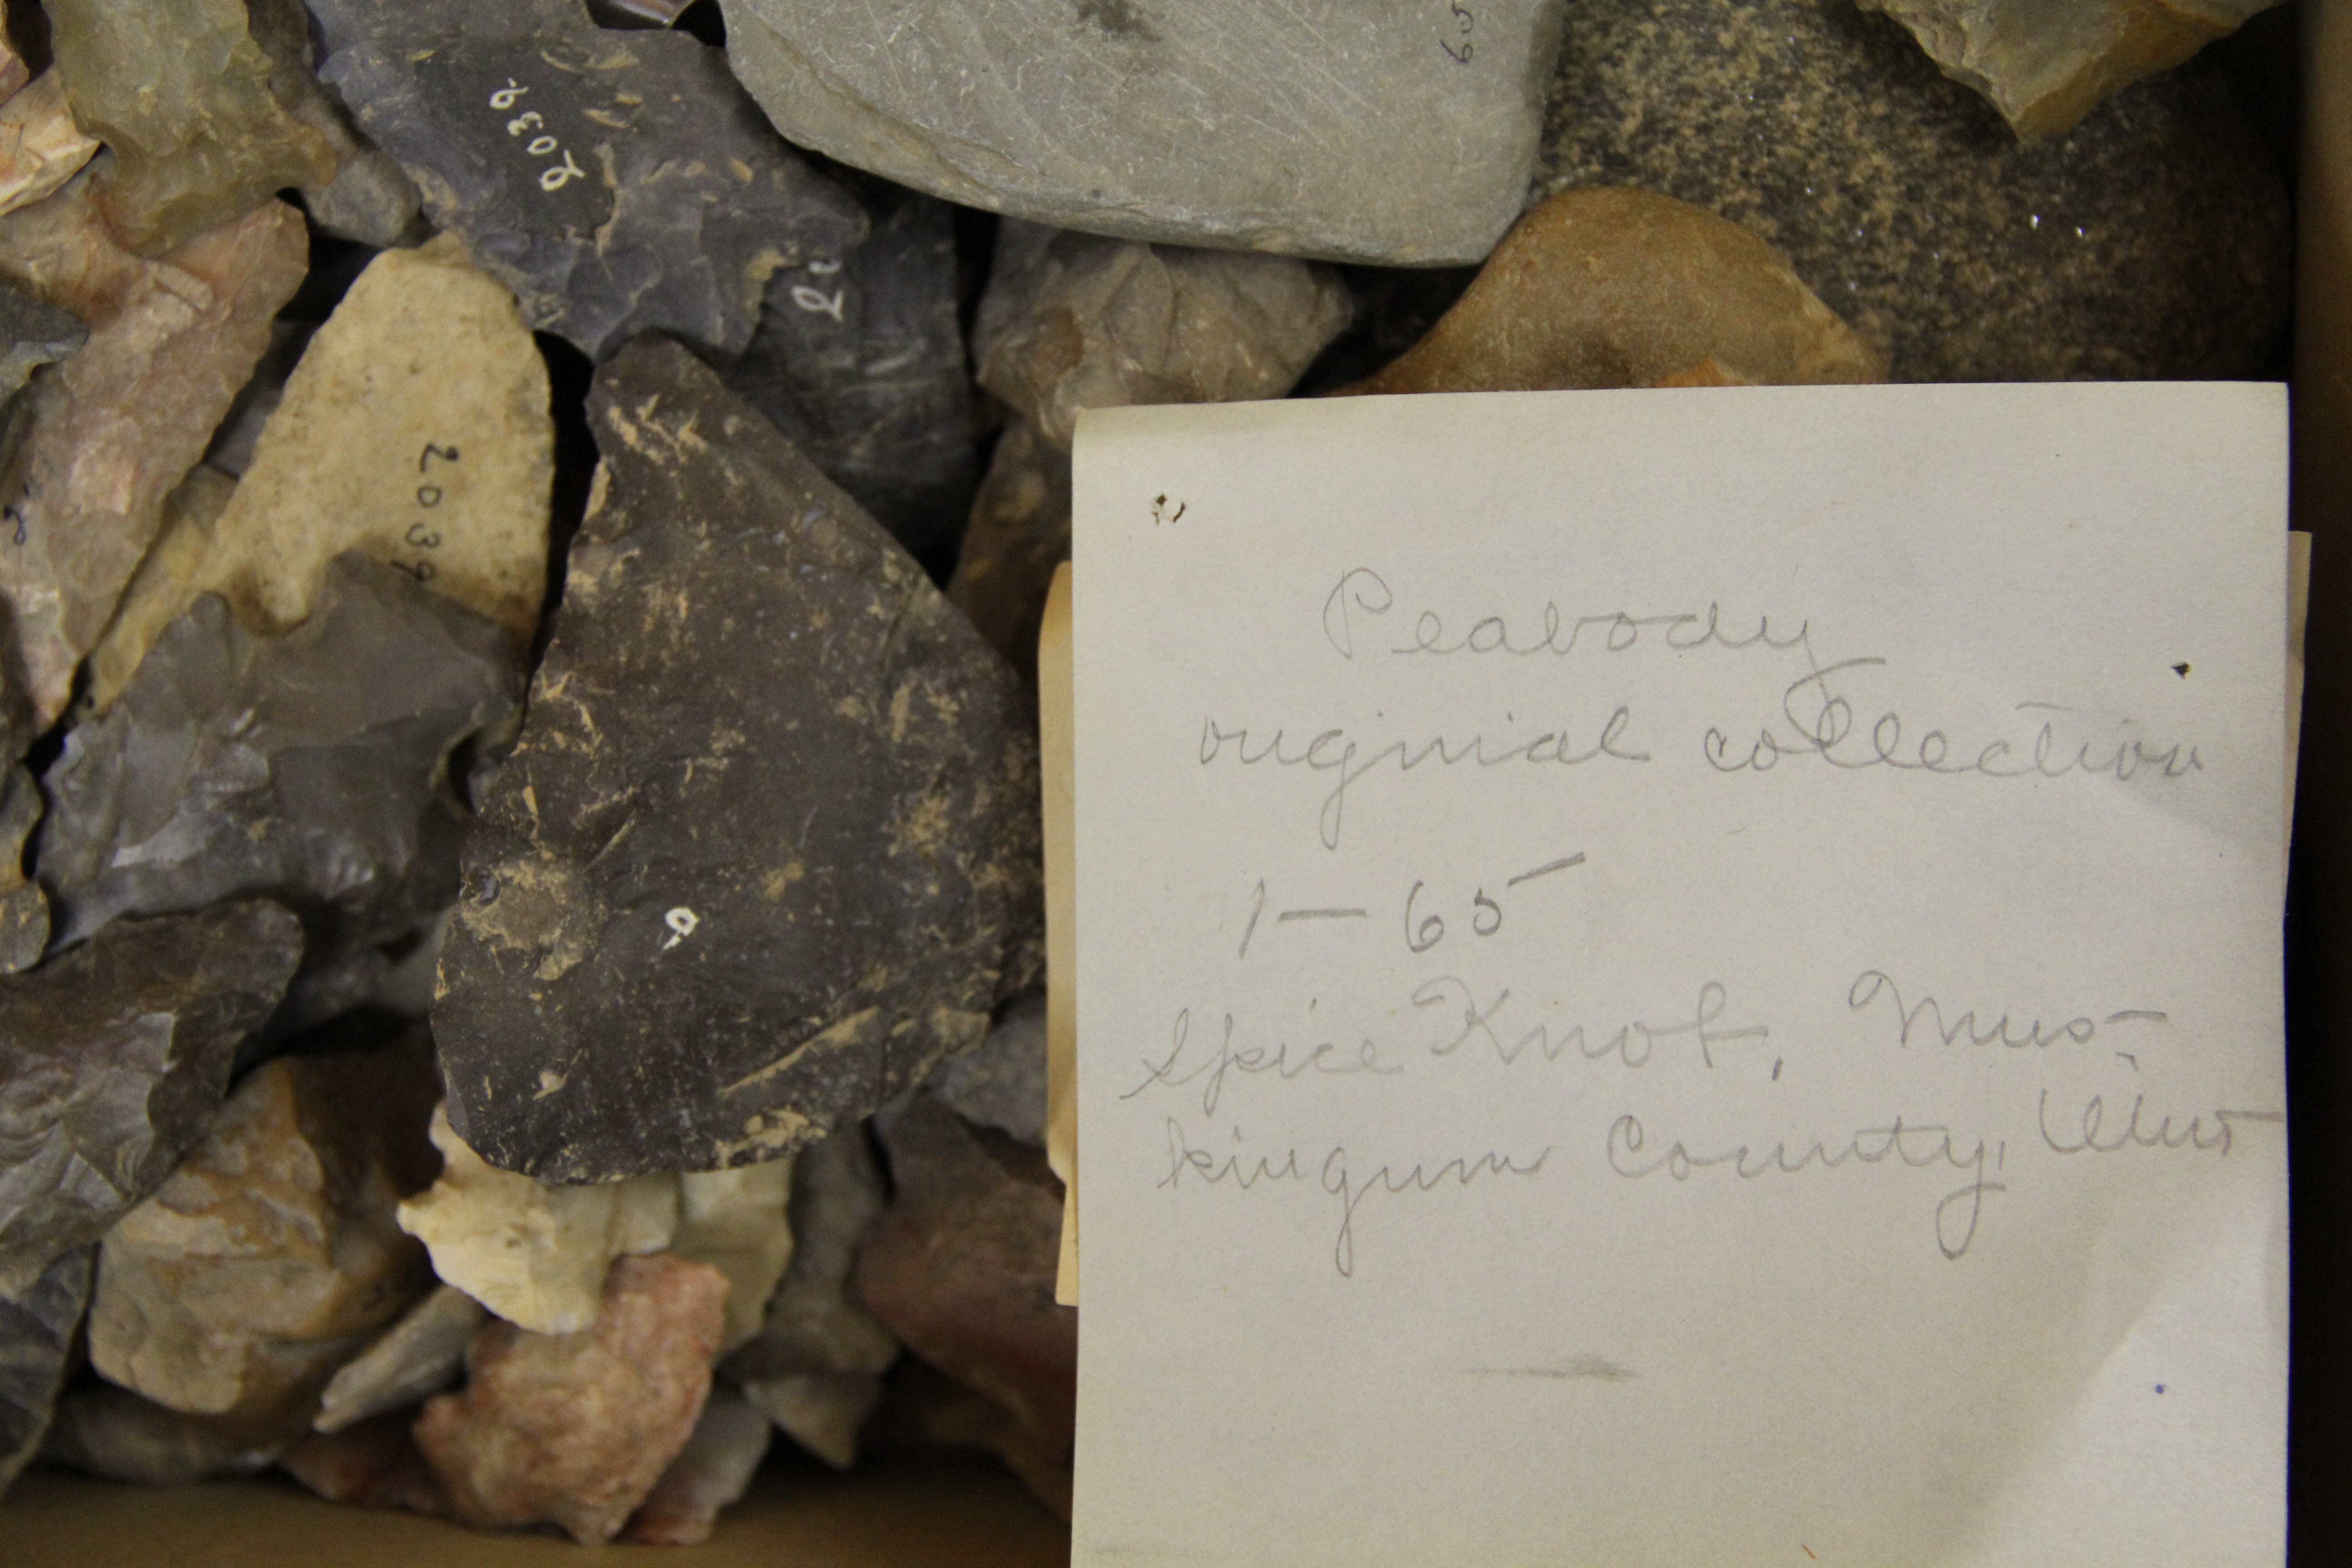 65
2039
2
2039
9
Peabody
original collection
1 — 65
Spice Knob, Mus-
kingum County, Ohio